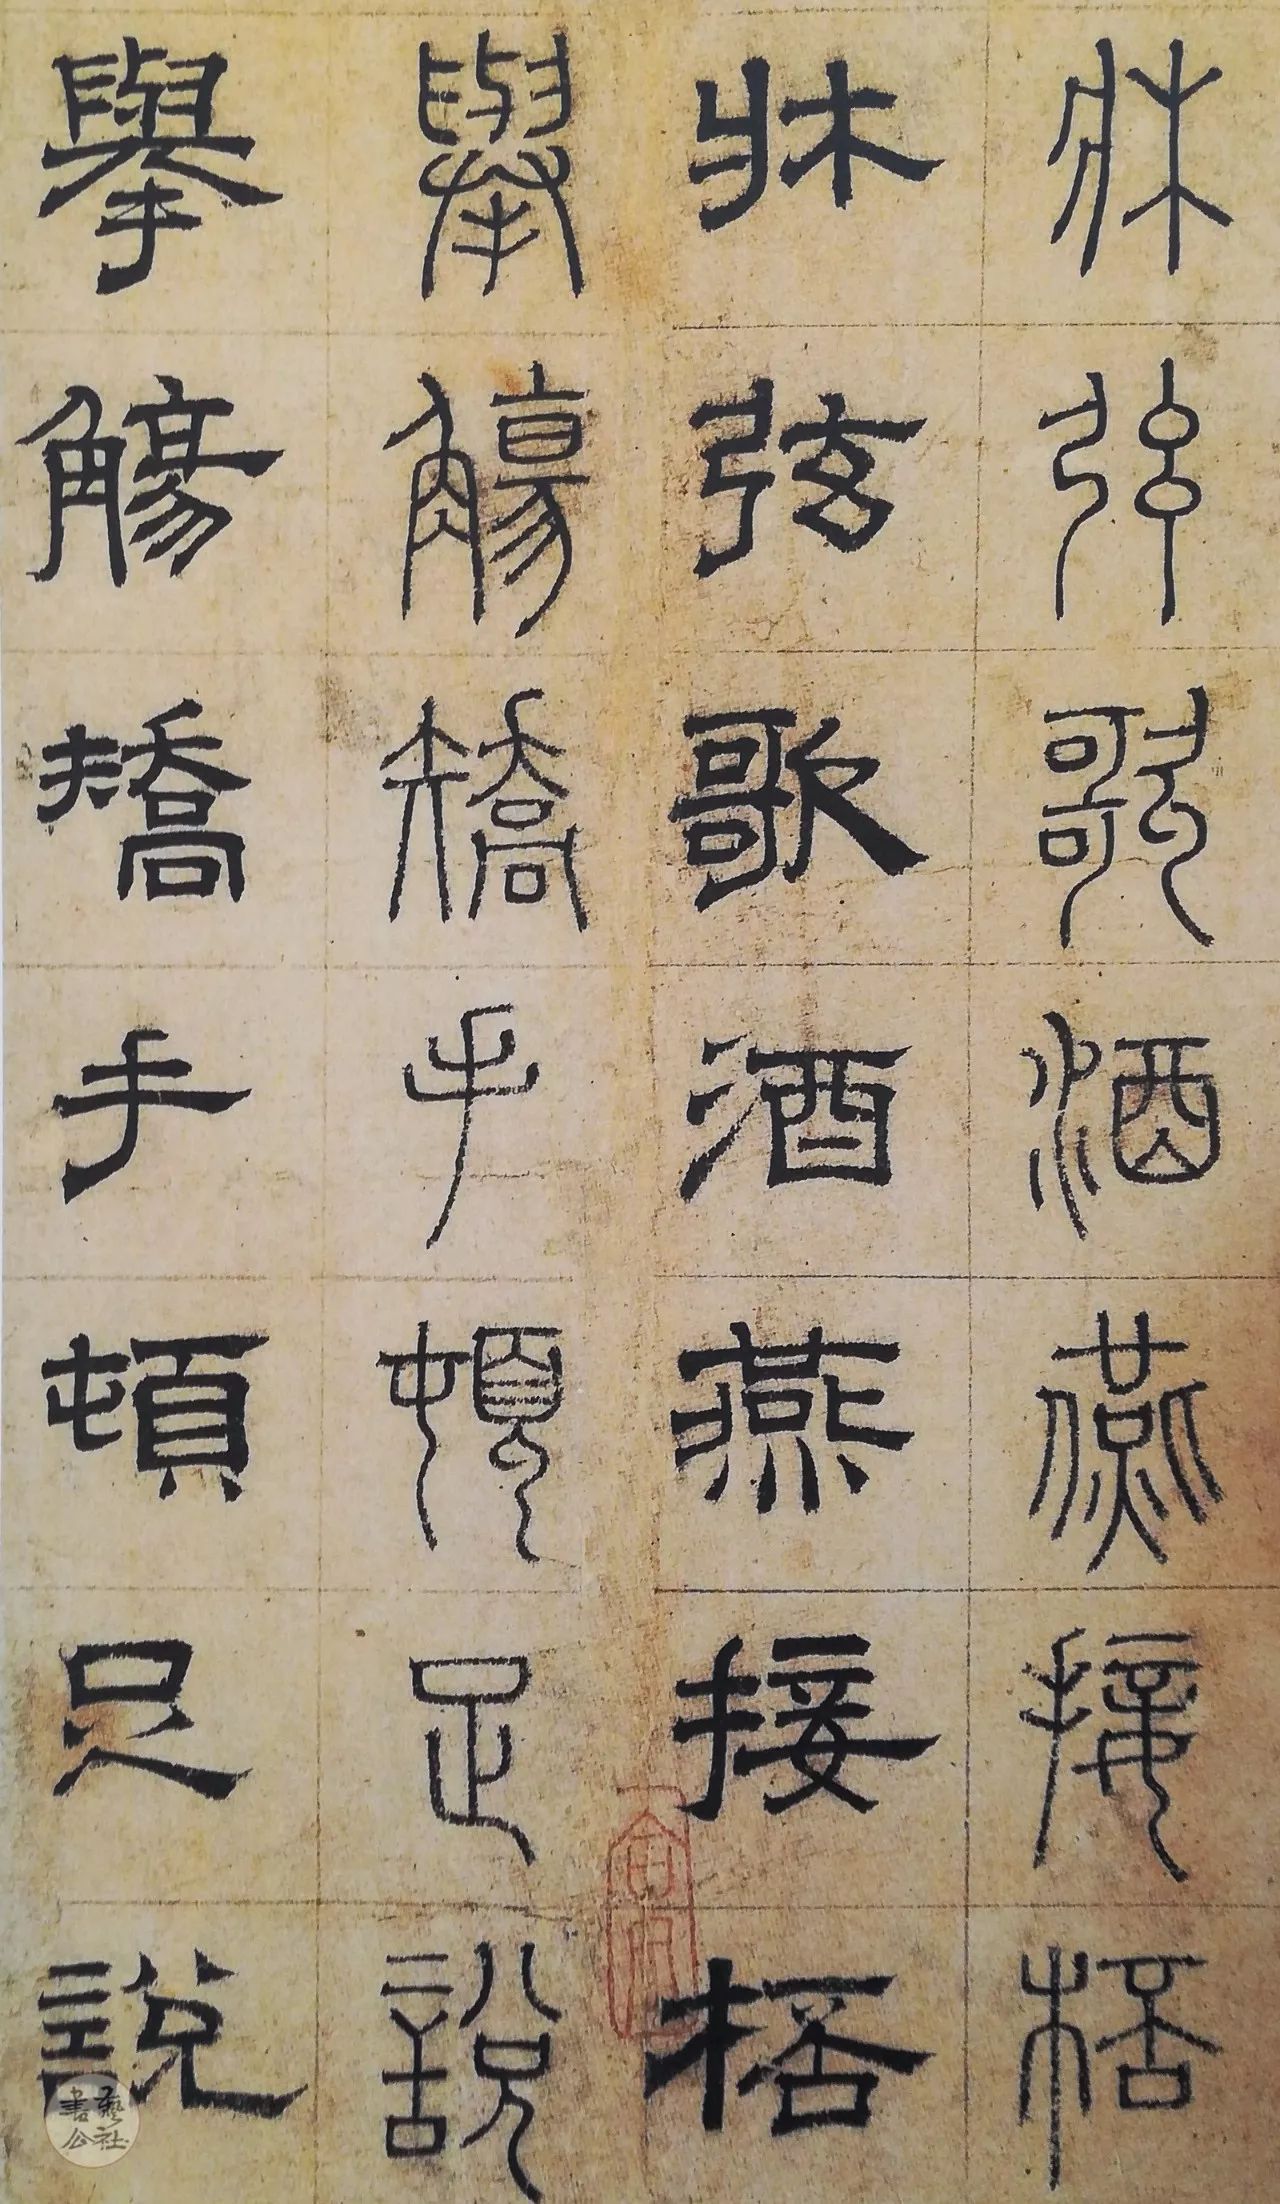 牀弦歌酒燕接桮
牀弦歌酒燕接桮
舉觴矯手頓足說
舉觴矯手頓足說
書藝公社